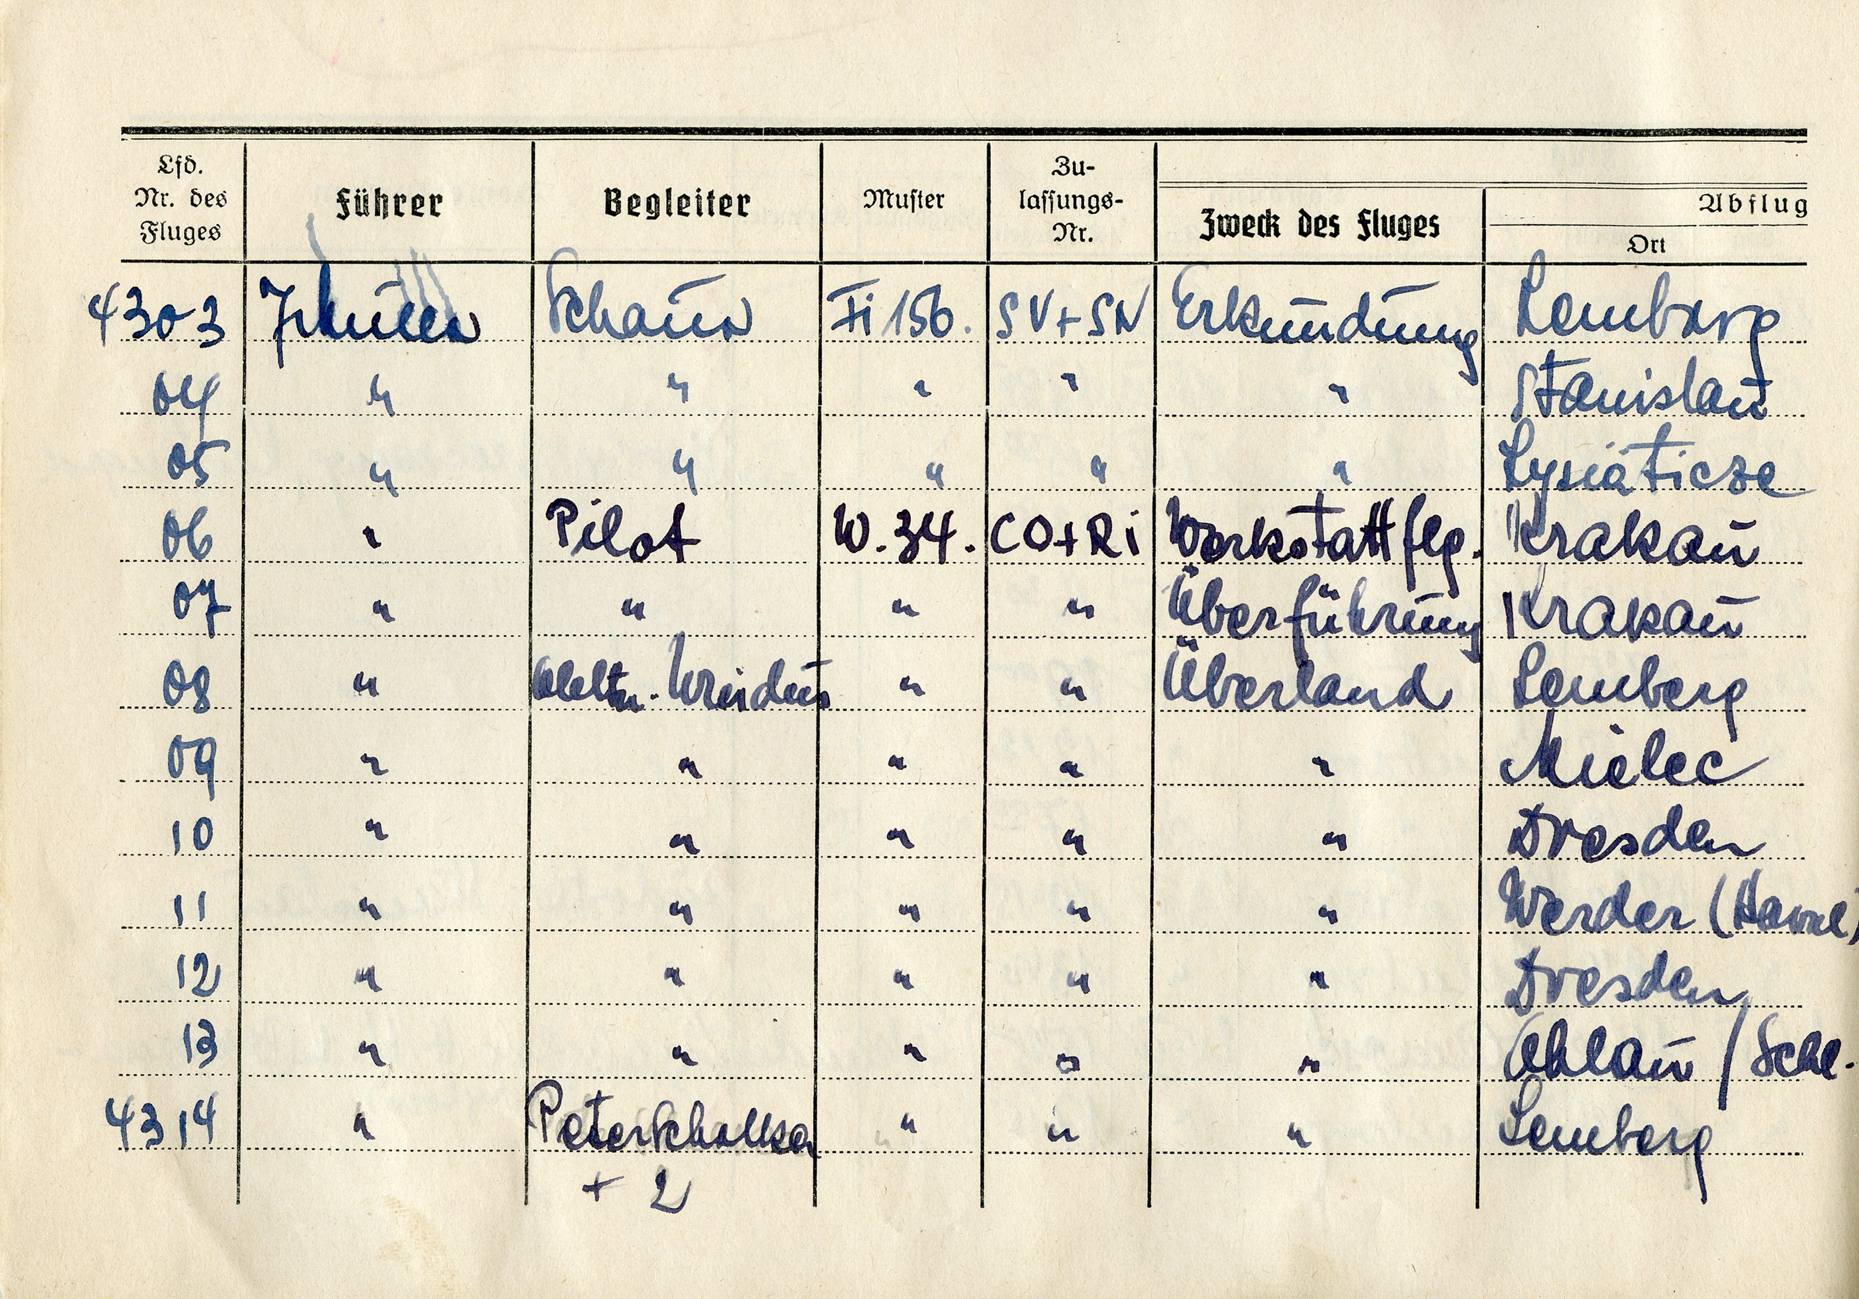 Lfd. Nr. des Fluges Führer Begleiter Muster Zulassungs-Nr. Zweck des Fluges Abflug Ort
4303 Schaur Fi 156. SV+SN Erkundung Lemberg
04 " " " " " Stanislau
05 " " " " " Lysiaticze
06 " Pilot W.34. CO+Ri Werkstattflg. Krakau
07 " " " " Überführung Krakau
08 " " " Überland Lemberg
09 " " " " " Mielec
10 " " " " " Dresden
11 " " " " " Werder (Havel)
12 " " " " " Dresden
13 " " " " " Ohlau / Schl.
4314 " Peter " " " Lemberg
+ 2